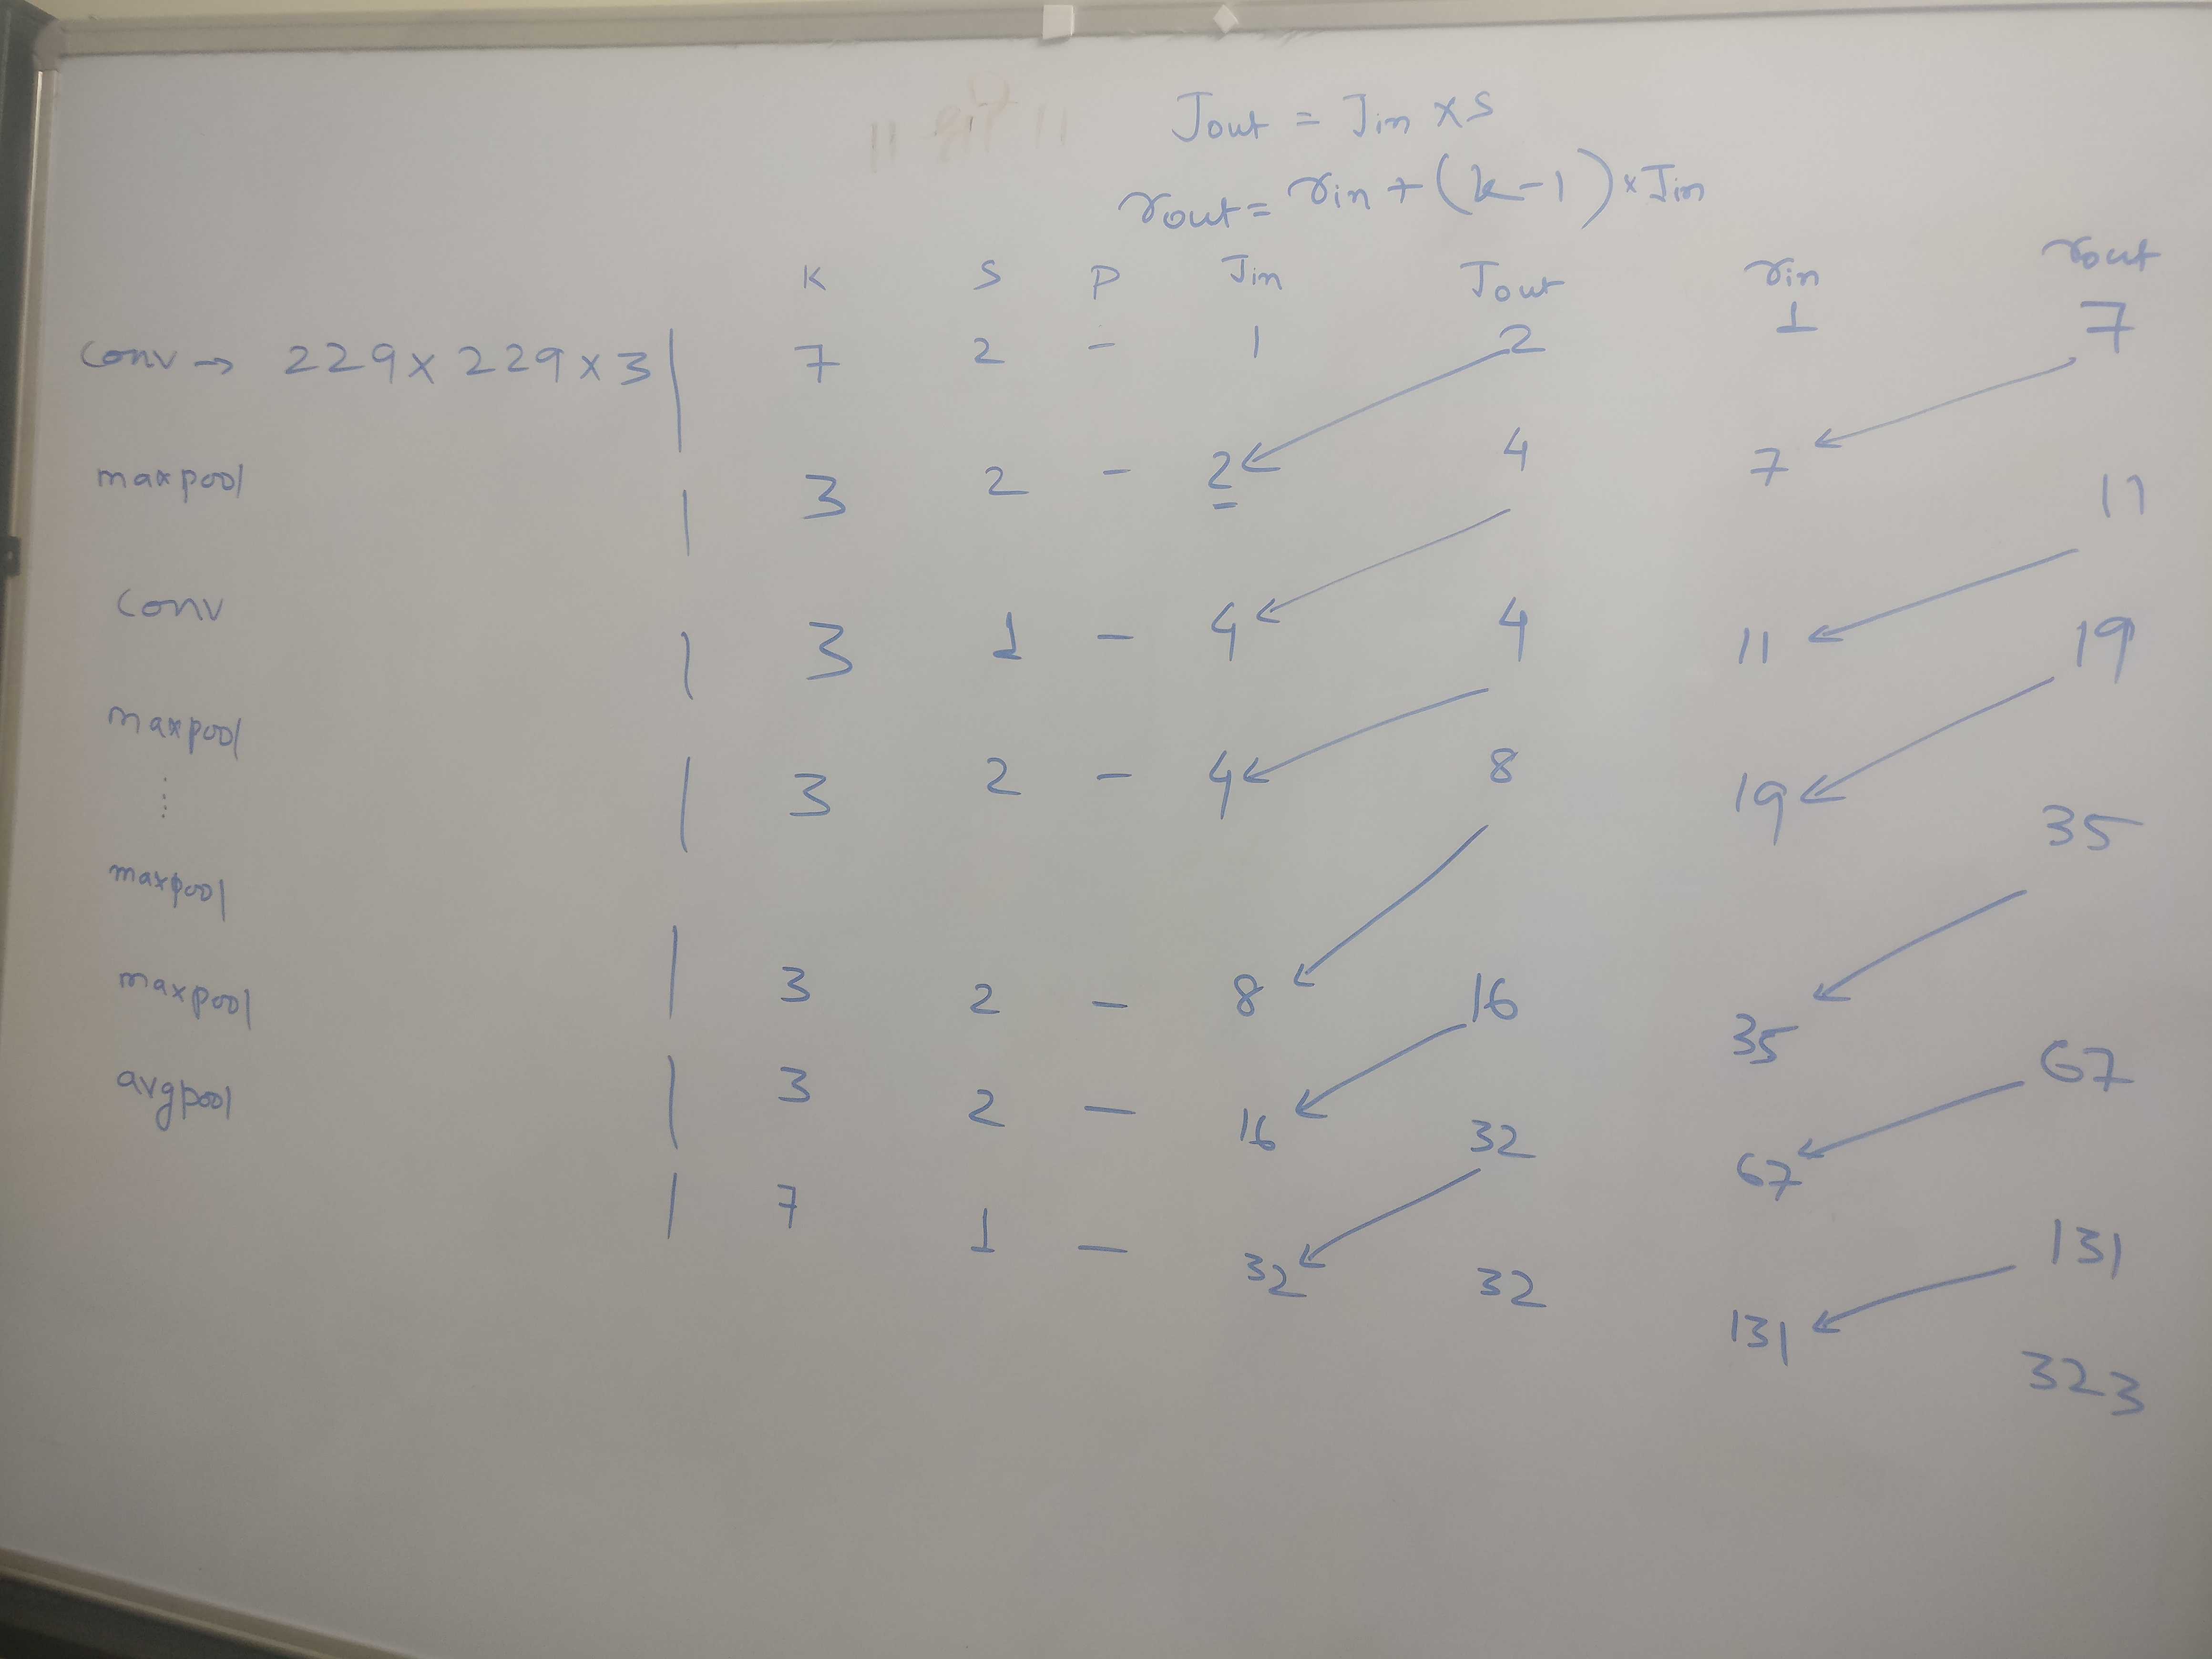 Jout = Jin × s
rout = rin + (k-1) × Jin
K S P Jin Jout rin rout
conv → 229 × 229 × 3 | 7 2 - 1 2 1 7
maxpool | 3 2 - 2 4 7 11
conv | 3 1 - 4 4 11 19
maxpool | 3 2 - 4 8 19 35
⋮
maxpool | 3 2 - 8 16 35 67
maxpool | 3 2 - 16 32 67 131
avgpool | 7 1 - 32 32 131 323